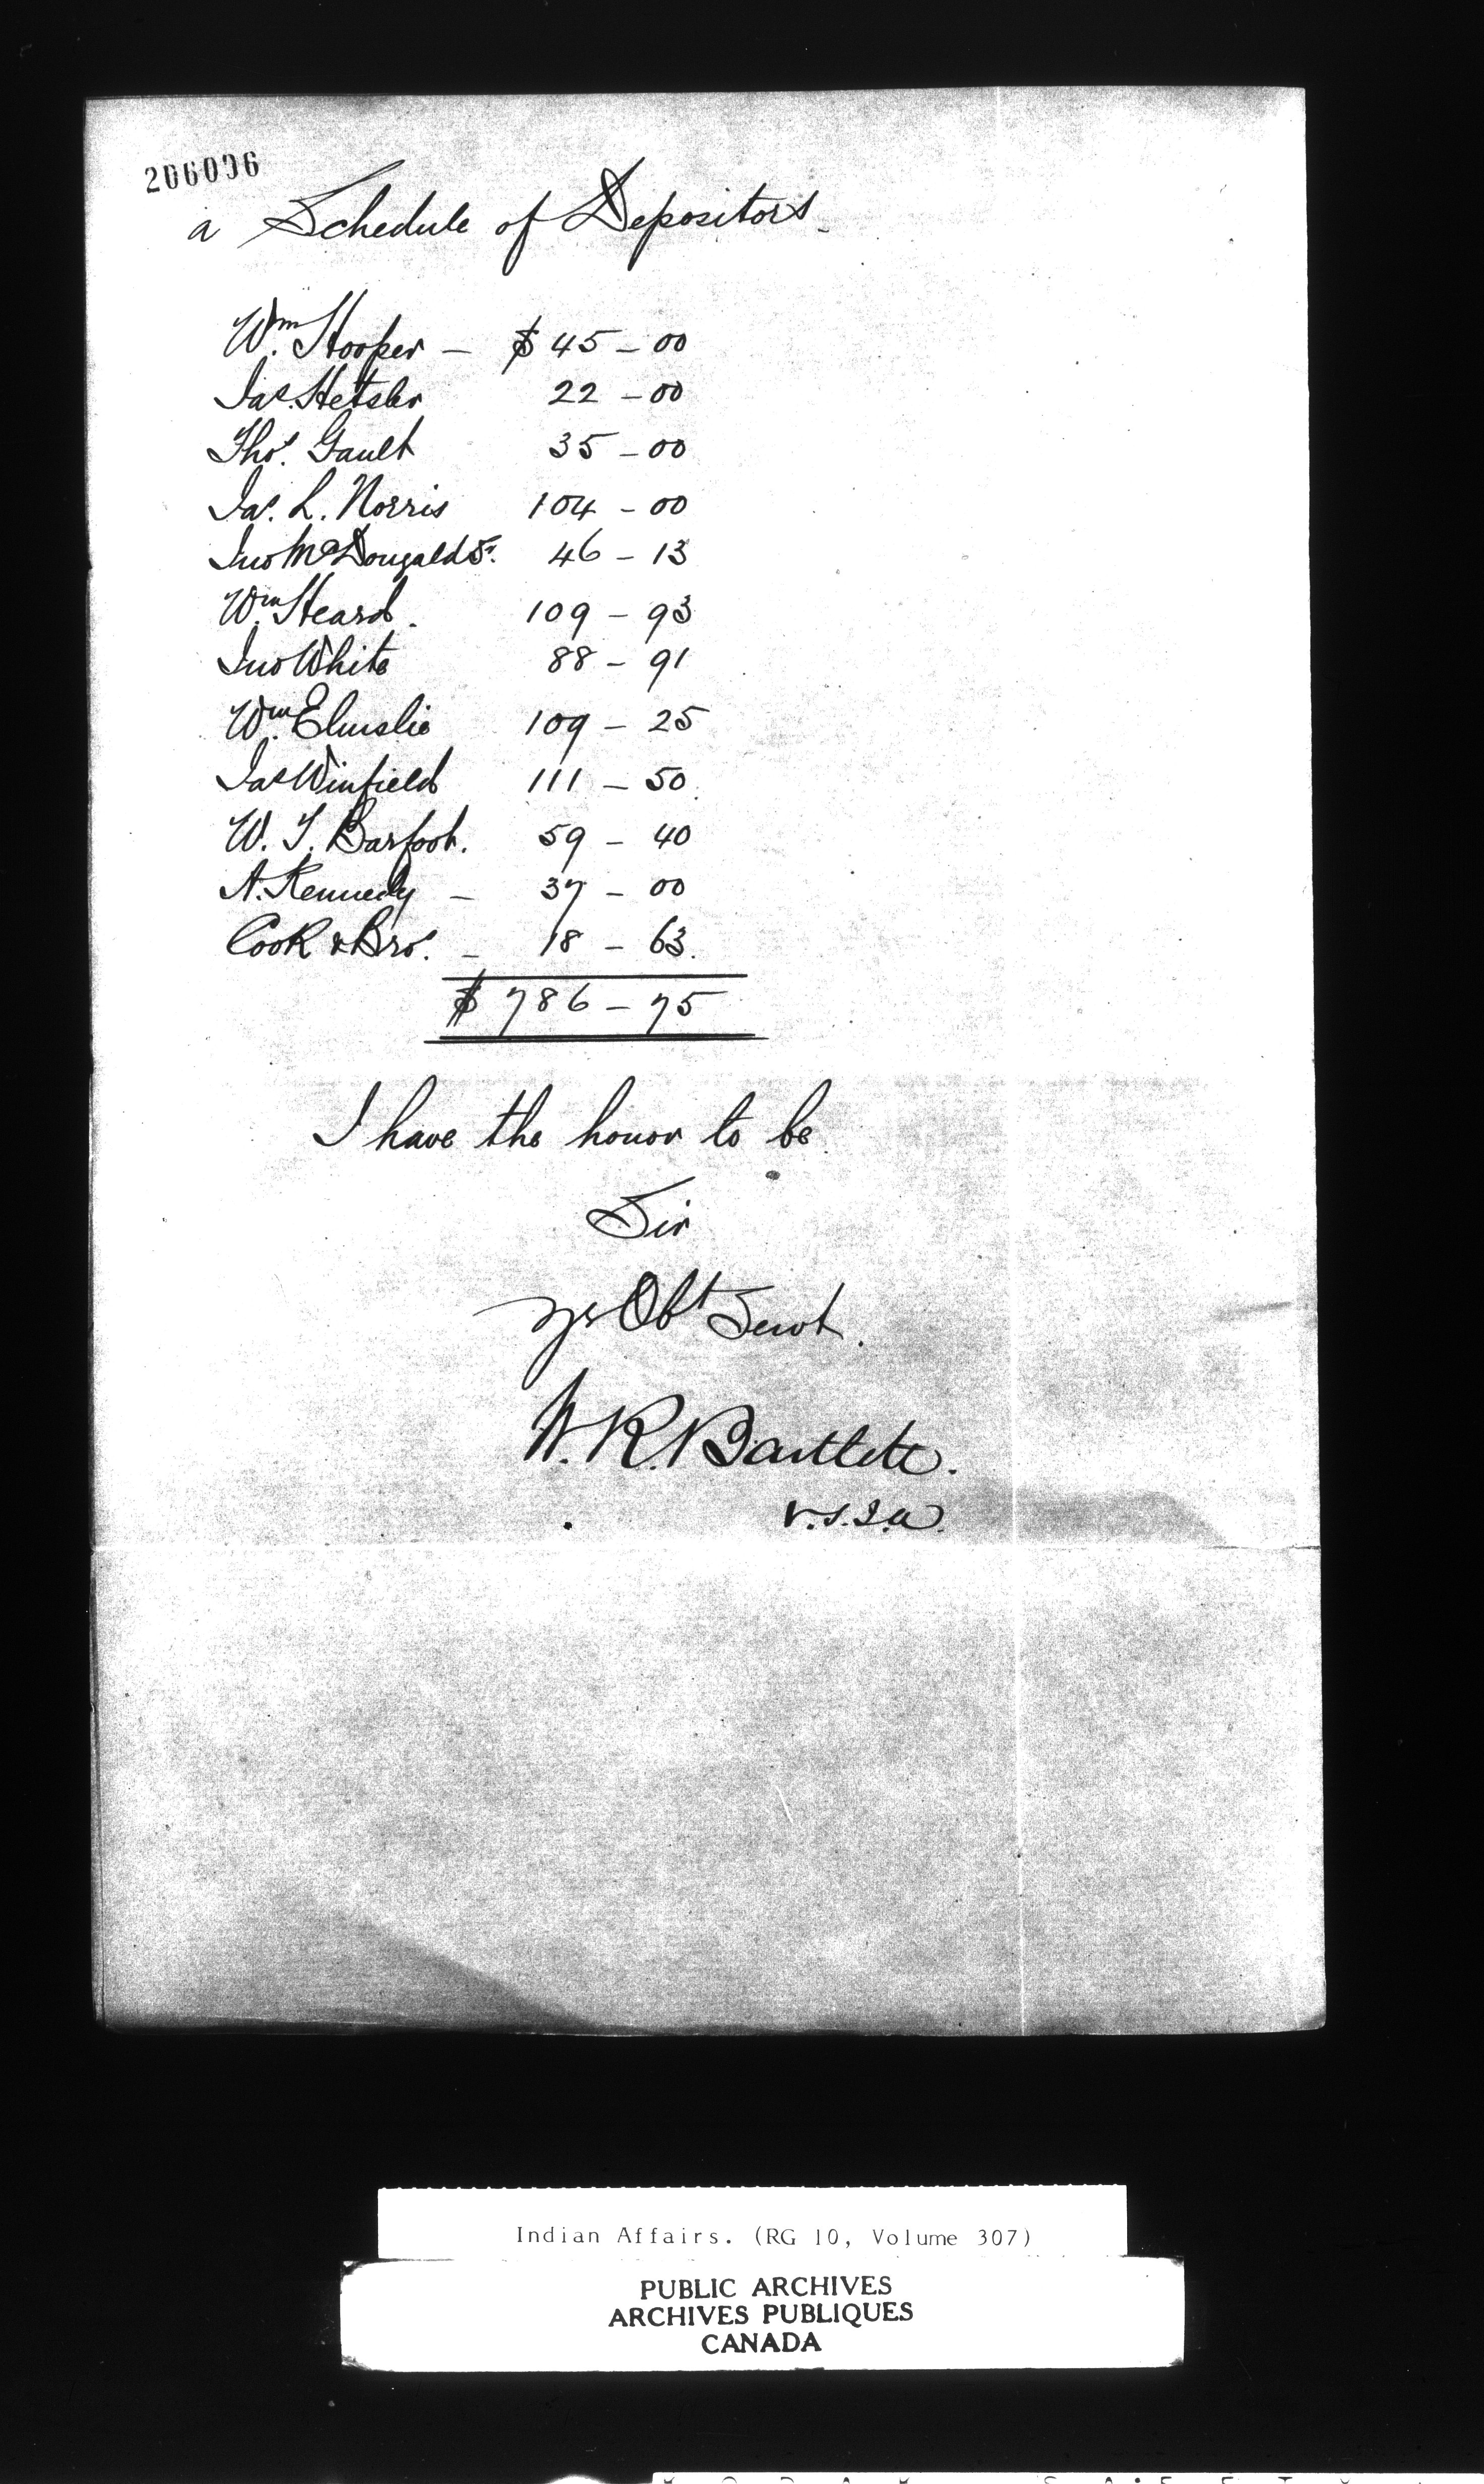 206006
a Schedule of Depositors
Wm. Hooper — $ 45 – 00
Jas. Hetsler 22 – 00
Thos. Gault 35 – 00
Jas. L. Norris 104 – 00
Jno McDougald Sr. 46 – 13
Wm. Heard. 109 – 93
Jno White 88 – 91
Wm. Elmslie 109 – 25
Jas Winfield 111 – 50
W. T. Barfoot. 59 – 40
A. Kennedy — 37 – 00
Cook & Bros. – 18 – 63.
$ 786 – 75
I have the honor to be
Sir
Yr Obt Servt.
W.R. Bartlett.
V.S.I.A.
Indian Affairs. (RG 10, Volume 307)
PUBLIC ARCHIVES
ARCHIVES PUBLIQUES
CANADA